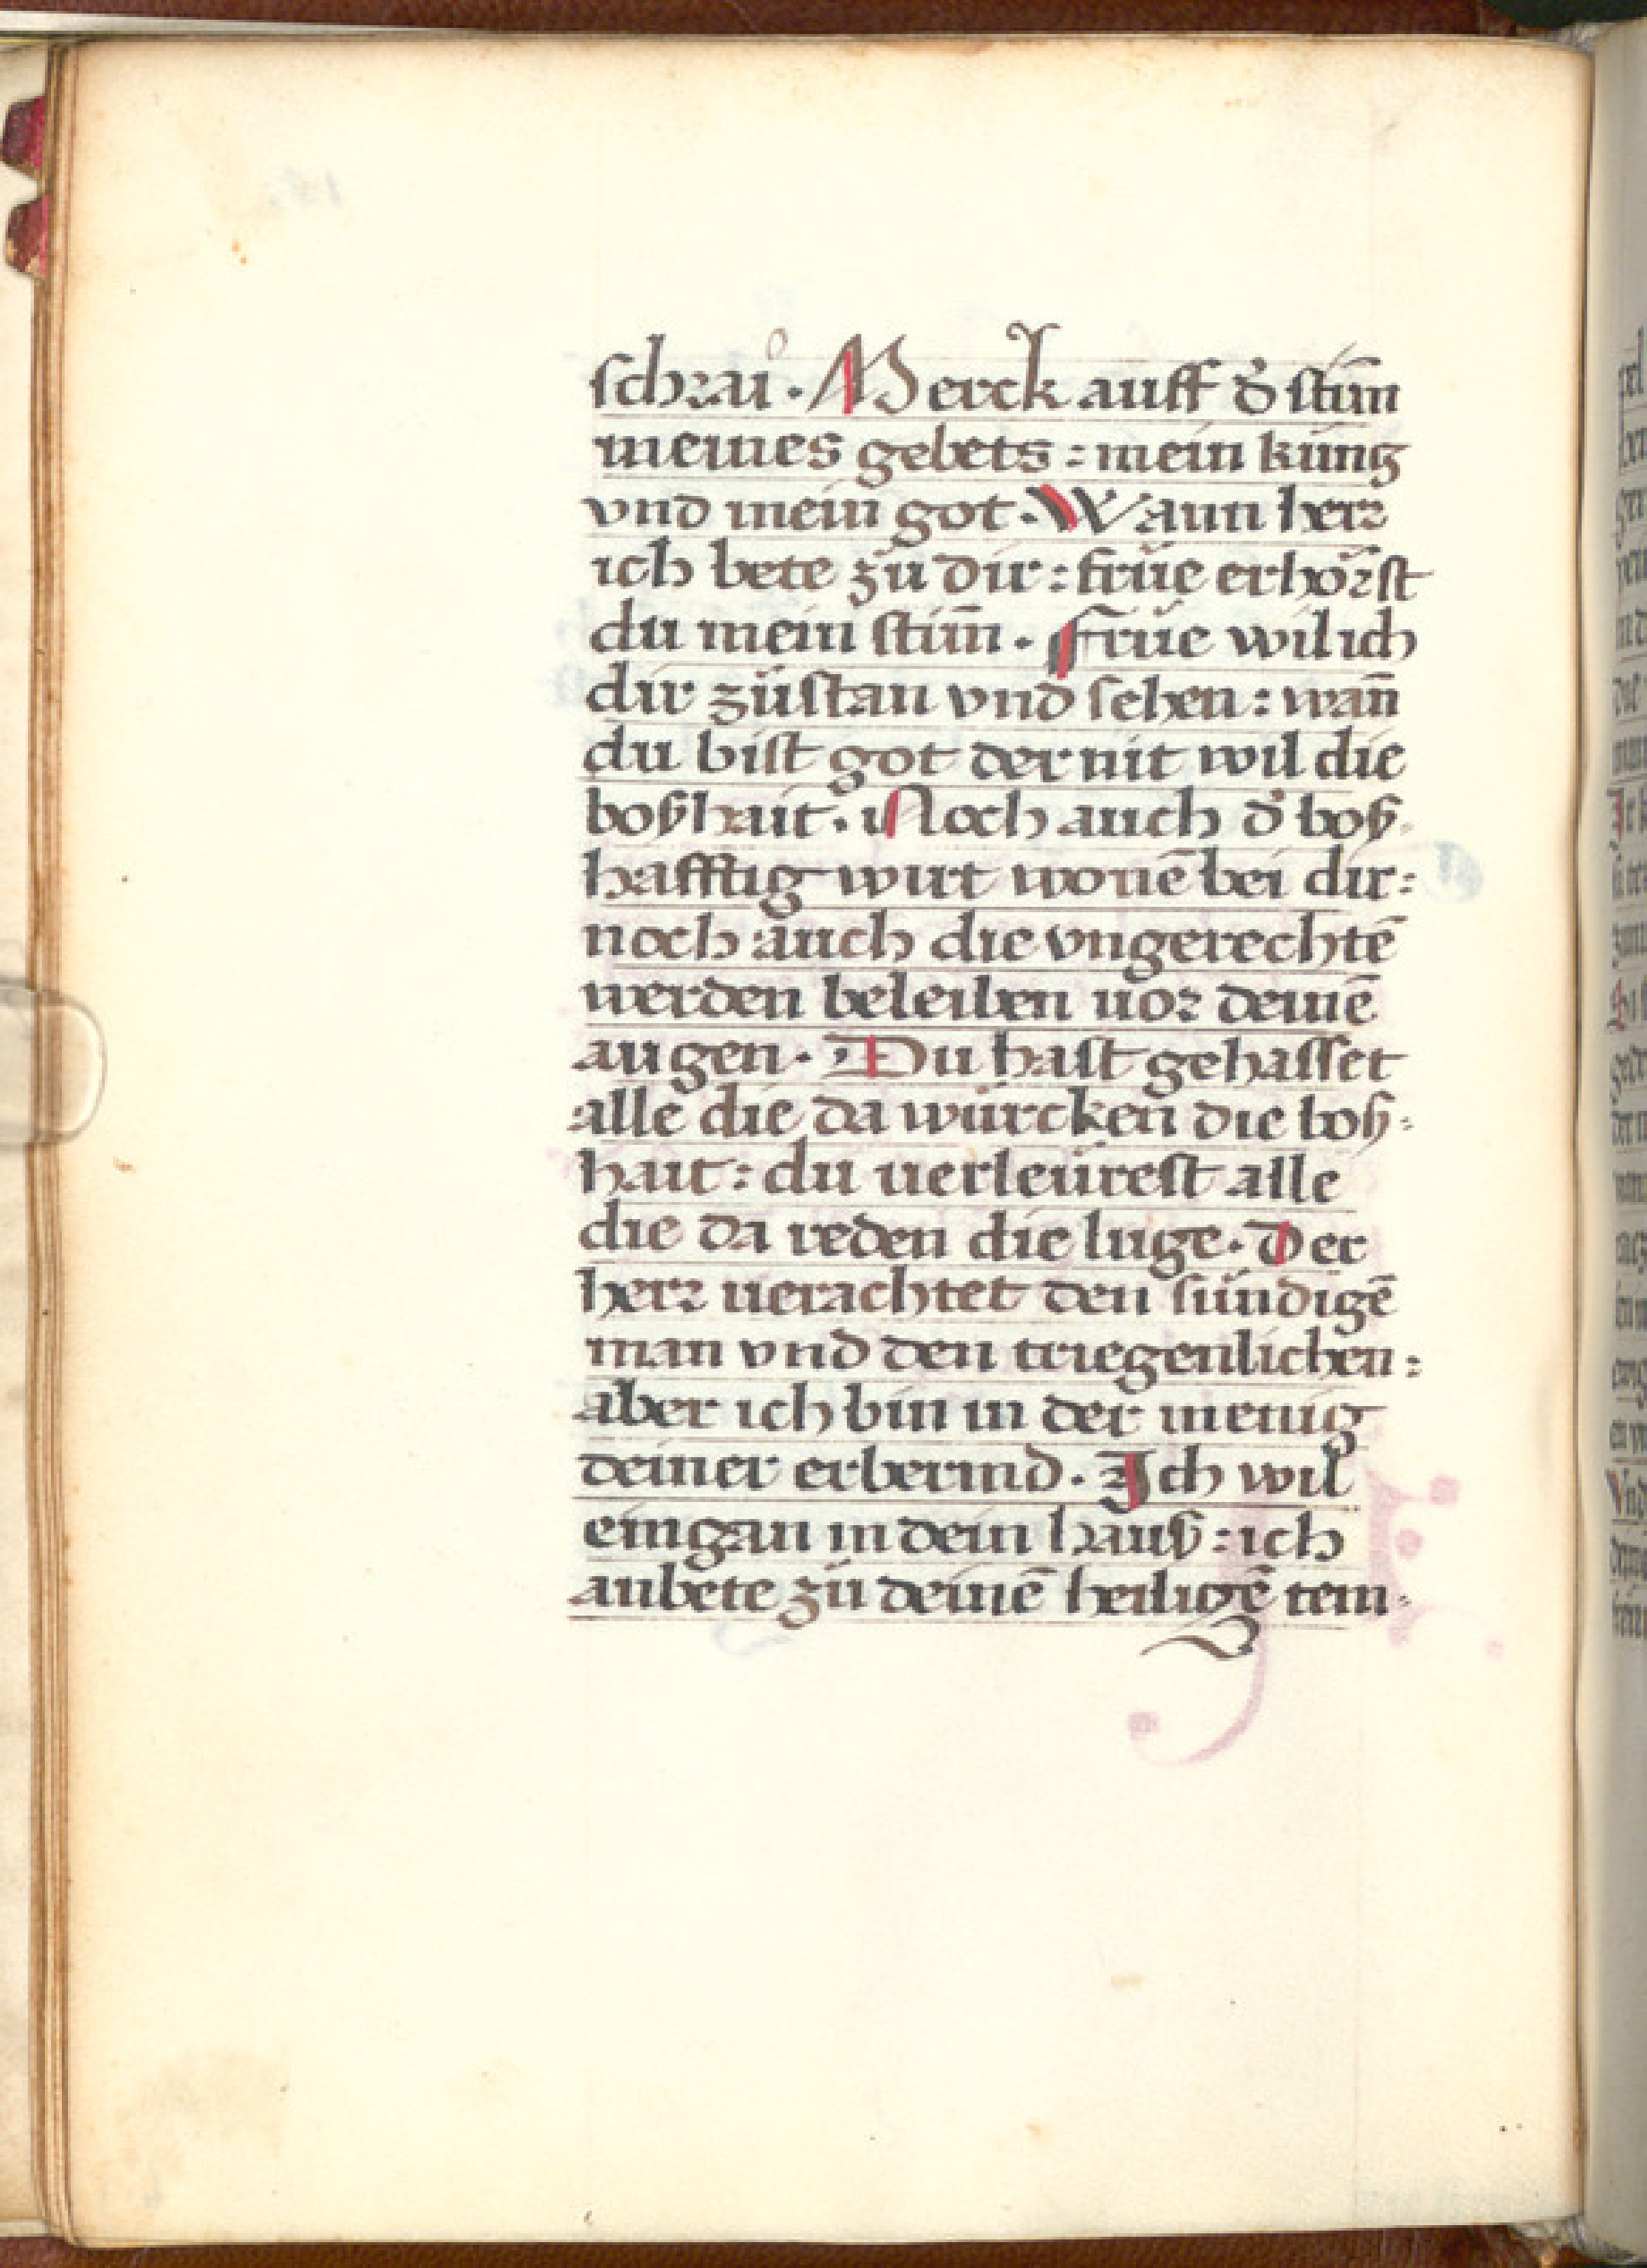 schrai · Merck auff d̕ stim̄
meines gebets : mein küng
vnd mein got · Wann herr
ich bete zů dir : früe erhörst
du mein stim̄ · Früe wil ich
dir zůstan vnd sehen : wan̄
du bist got der nit wil die
boßhait · Noch auch d̕ boß
hafftig wurt wonē bei dir :
noch auch die vngerechtē
werden beleiben uor deinē
augen · Du hast gehasset
alle die da würcken die boß :
hait : du uerleürest alle
die da reden die luge · Der
herr uerachtet den sündigē
man vnd den triegenlichen :
aber ich bin in der menig
deiner erbermd · Ich wil
eingan in dein hauß : ich
anbete zů deinē heiligē tem :